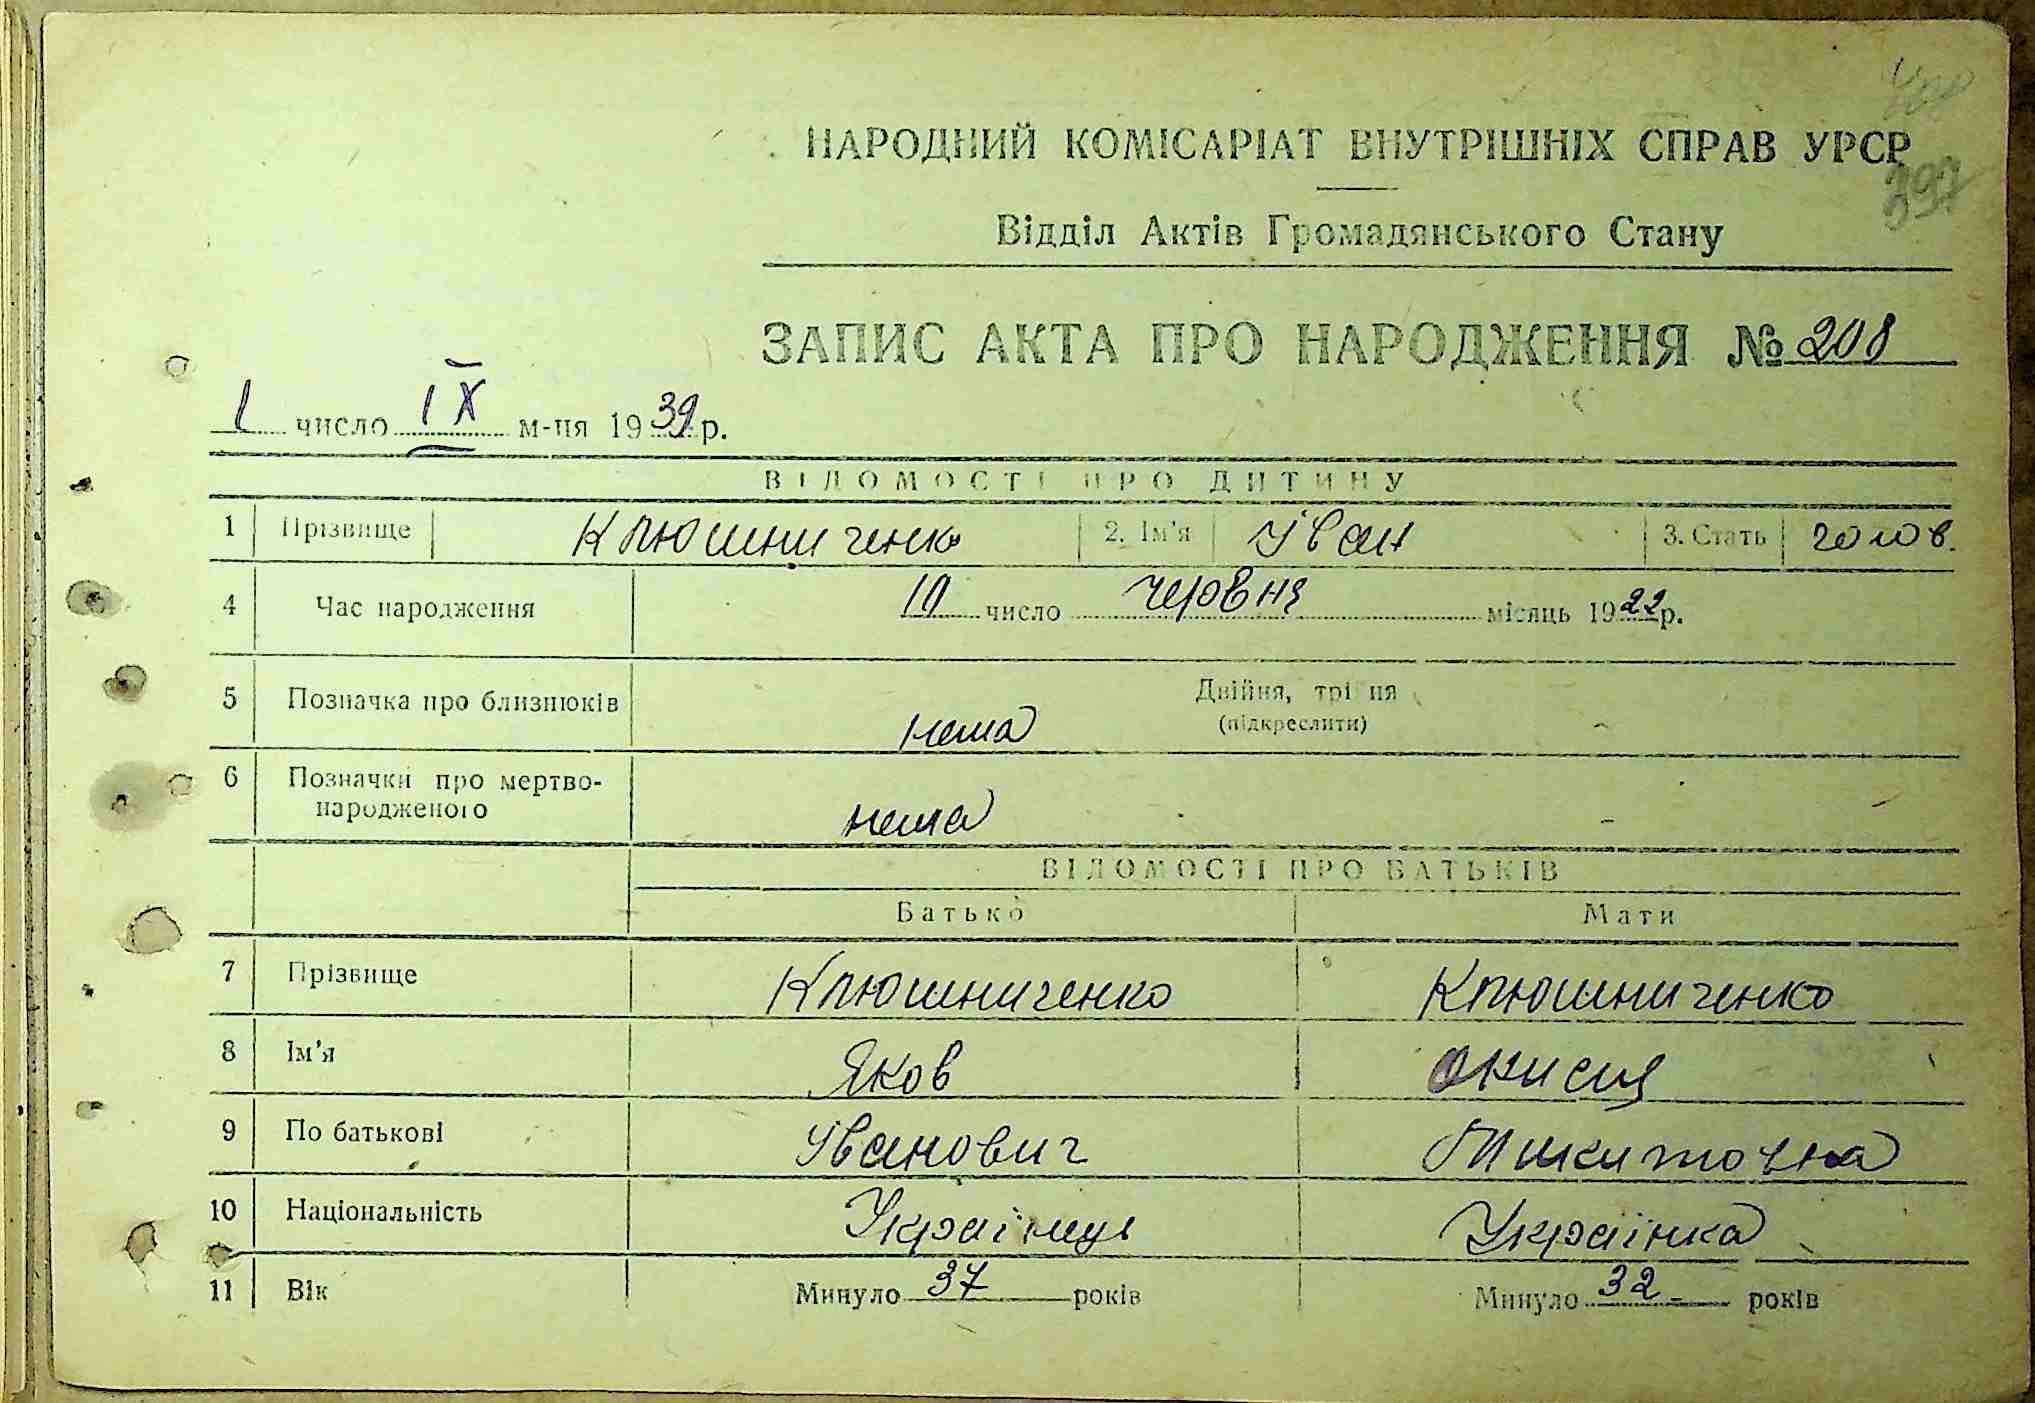 397
НАРОДНИЙ КОМІСАРІАТ ВНУТРІШНІХ СПРАВ УРСР
Відділ Актів Громадянського Стану
ЗАПИС АКТА ПРО НАРОДЖЕННЯ № 208
1 число IX м-ця 1939 р.
ВІДОМОСТІ ПРО ДИТИНУ
1 Прізвище Клюшниченко 2. Ім'я Іван 3. Стать чолов.
4 Час народження 10 число червня місяць 1922 р.
5 Позначка про близнюків нема Двійня, трійня
(підкреслити)
6 Позначки про мертво-
народженого нема
ВІДОМОСТІ ПРО БАТЬКІВ
Батько Мати
7 Прізвище Клюшниченко Клюшниченко
8 Ім'я Яков
9 По батькові Іванович Микитовна
10 Національність Українець Українка
11 Вік Минуло 37 років Минуло 32 років